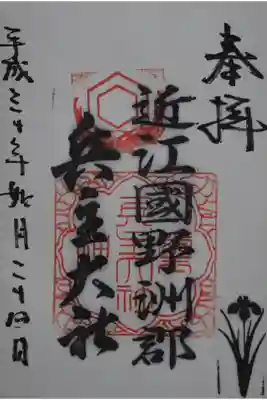 奉拝
近江國野洲郡
兵主大社
平成三十年月二十四日